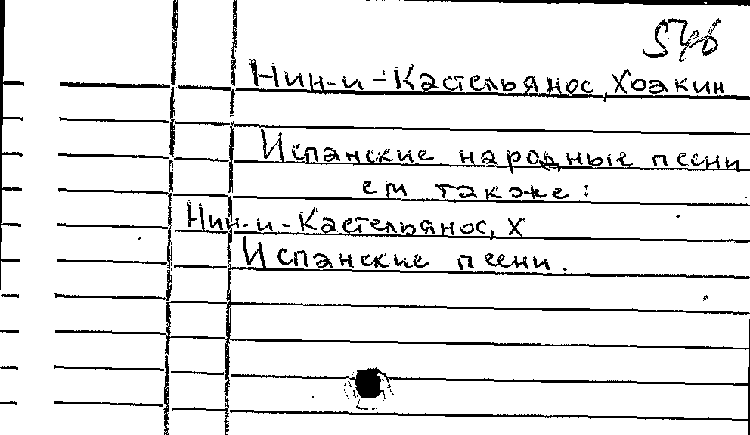 546
Нин-и-Кастельянос, Хоакин
Испанские народные песни
см также:
Нин-и-Кастельянос, Х
Испанские песни.